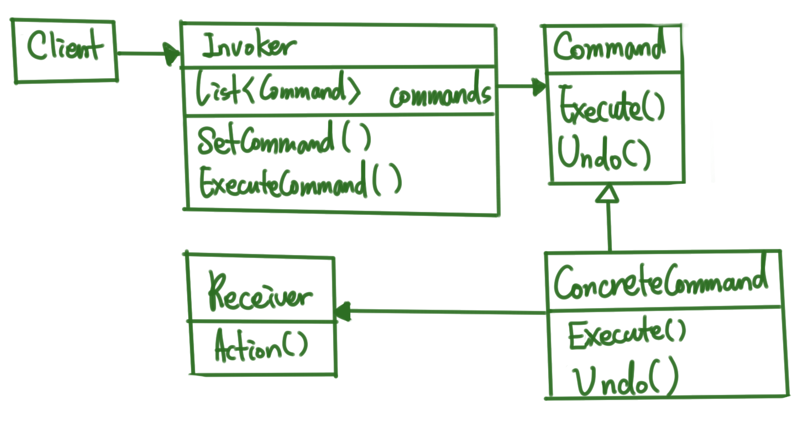 Client
Invoker
List<Command> commands
SetCommand()
ExecuteCommand()
Command
Execute()
Undo()
Receiver
Action()
ConcreteCommand
Execute()
Undo()